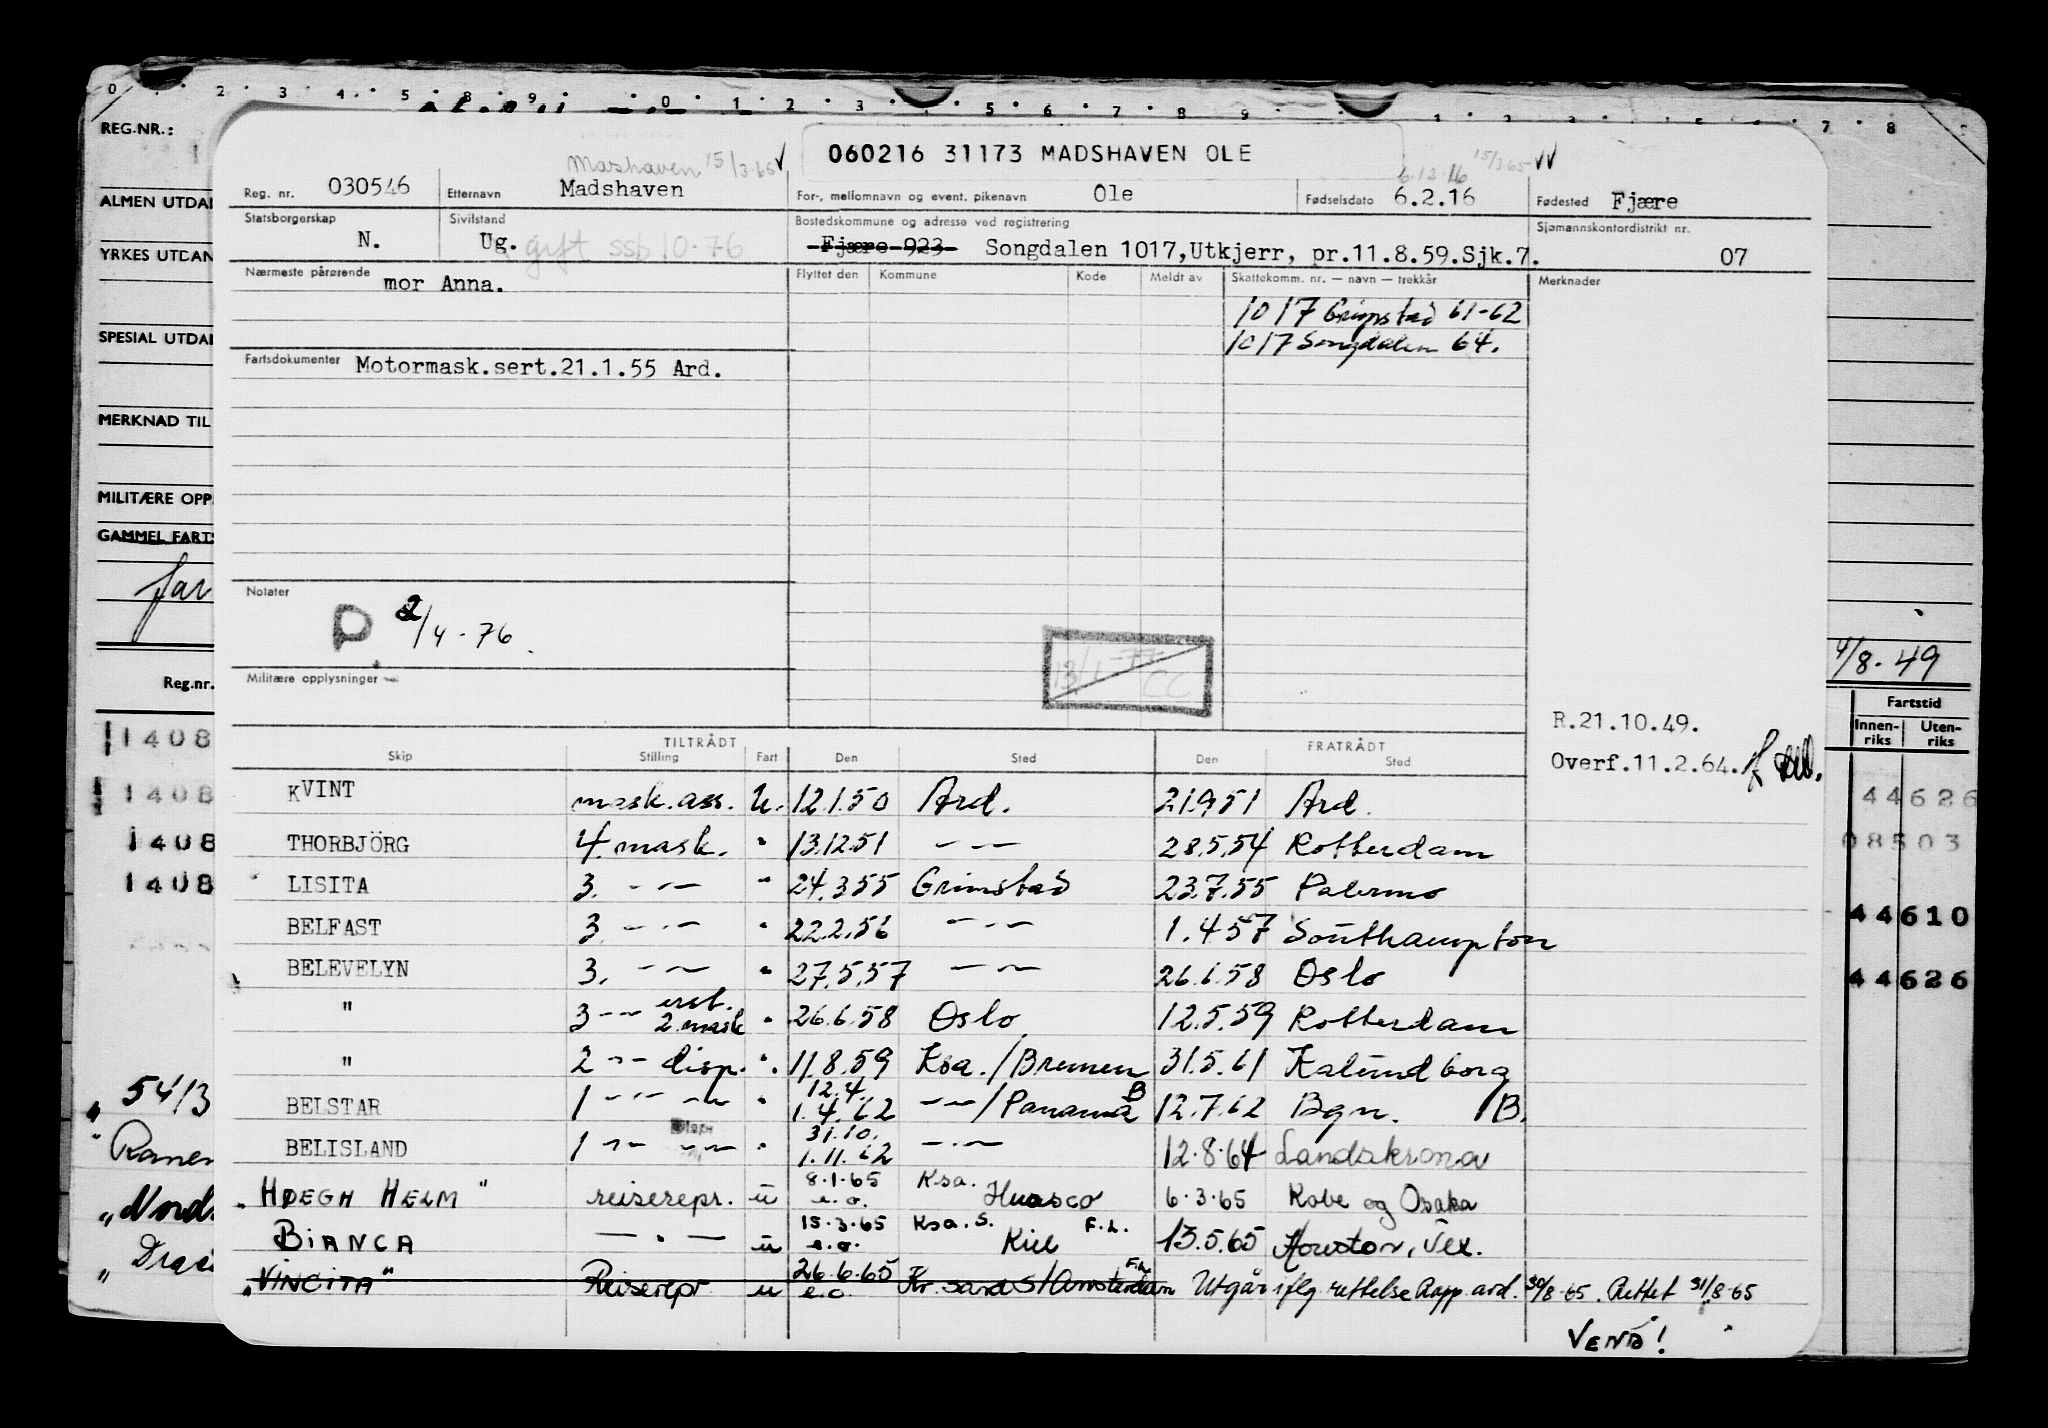 0 · · 2 · 3 · 4 · 5 8 9 0 1 · 2 · 3 · 5 · 6 · 7 · 8 · 9 · 1 2 3 7 · 8
REG.NR.:
ALMEN UTDA
YRKES UTDAN
SPESIAL UTDA
MERKNAD TIL
MILITÆRE OPP
GAMMEL FART
far
Reg.nr.
1408
1408
1408
1408
" 54/3
" Ranen
" Nords
" Drags
Mashaven 15/3-65 √
060216 31173 MADSHAVEN OLE
6.12.16 15/3 65 √√
Reg. nr. 030546 Etternavn Madshaven For-, mellomnavn og event. pikenavn Ole Fødselsdato 6.2.16 Fødested Fjære
Statsborgerskap N. Sivilstand Ug. gift ssb 10-76 Bostedskommune og adresse ved registrering Fjære 923 Songdalen 1017,Utkjerr, pr.11.8.59.Sjk.7. Sjømannskontordistrikt nr. 07
Nærmeste pårørende mor Anna. Flyttet den Kommune Kode Meldt av Skattekomm. nr. — navn — trekkår Merknader
1017 Grimstad 61-62
1017 Songdalen 64.
Fartsdokumenter Motormask.sert.21.1.55 Ard.
Notater
P 2/4-76.
13/1-77 CC
Militære opplysninger
R.21.10.49.
Overf.11.2.64.
4/8-49
Fartstid
Innen-riks Uten-riks
44626
08503
44610
44626
TILTRÅDT FRATRÅDT
Skip Stilling Fart Den Sted Den Sted
KVINT mask.ass. U. 12.1.50 Ard. 21.9.51 Ard.
THORBJÖRG 4.mask. " 13.12.51 — " — 28.5.54 Rotterdam
LISITA 3. — " — " 24.3.55 Grimstad 23.7.55 Palermo
BELFAST 3. — " — " 22.2.56 — " — 1.4.57 Southampton
BELEVELYN 3. — " — " 27.5.57 — " — 26.6.58 Oslo
" 3 — " — erst. 2.mask " 26.6.58 Oslo 12.5.59 Rotterdam
" 2 — " — disp. " 11.8.59 Ksa./Bremen 31.5.61 Kalundborg
BELSTAR 1 — " — — " — " 12.4. 1.4.62 — " —/Panama B 12.7.62 Bgn. B.
BELISLAND 1 — " — — " — " 31.10. 1.11.62 — " — 12.8.64 Landskrona
"HØEGH HELM" reiserepr. u 8.1.65 e.o. Ksa. Huasco 6.3.65 Kobe og Osaka
BIANCA — " — u 15.3.65 e.o. Ksa.S. Kiel F.L. 13.5.65 Houston, Tex.
"VINCITA" Reiserepr u 26.6.65 e.o Kr.sand S/Amsterdam F.L. Utgår iflg rettelse Rapp. ard. 30/8-65. Rettet 31/8-65
VEND!